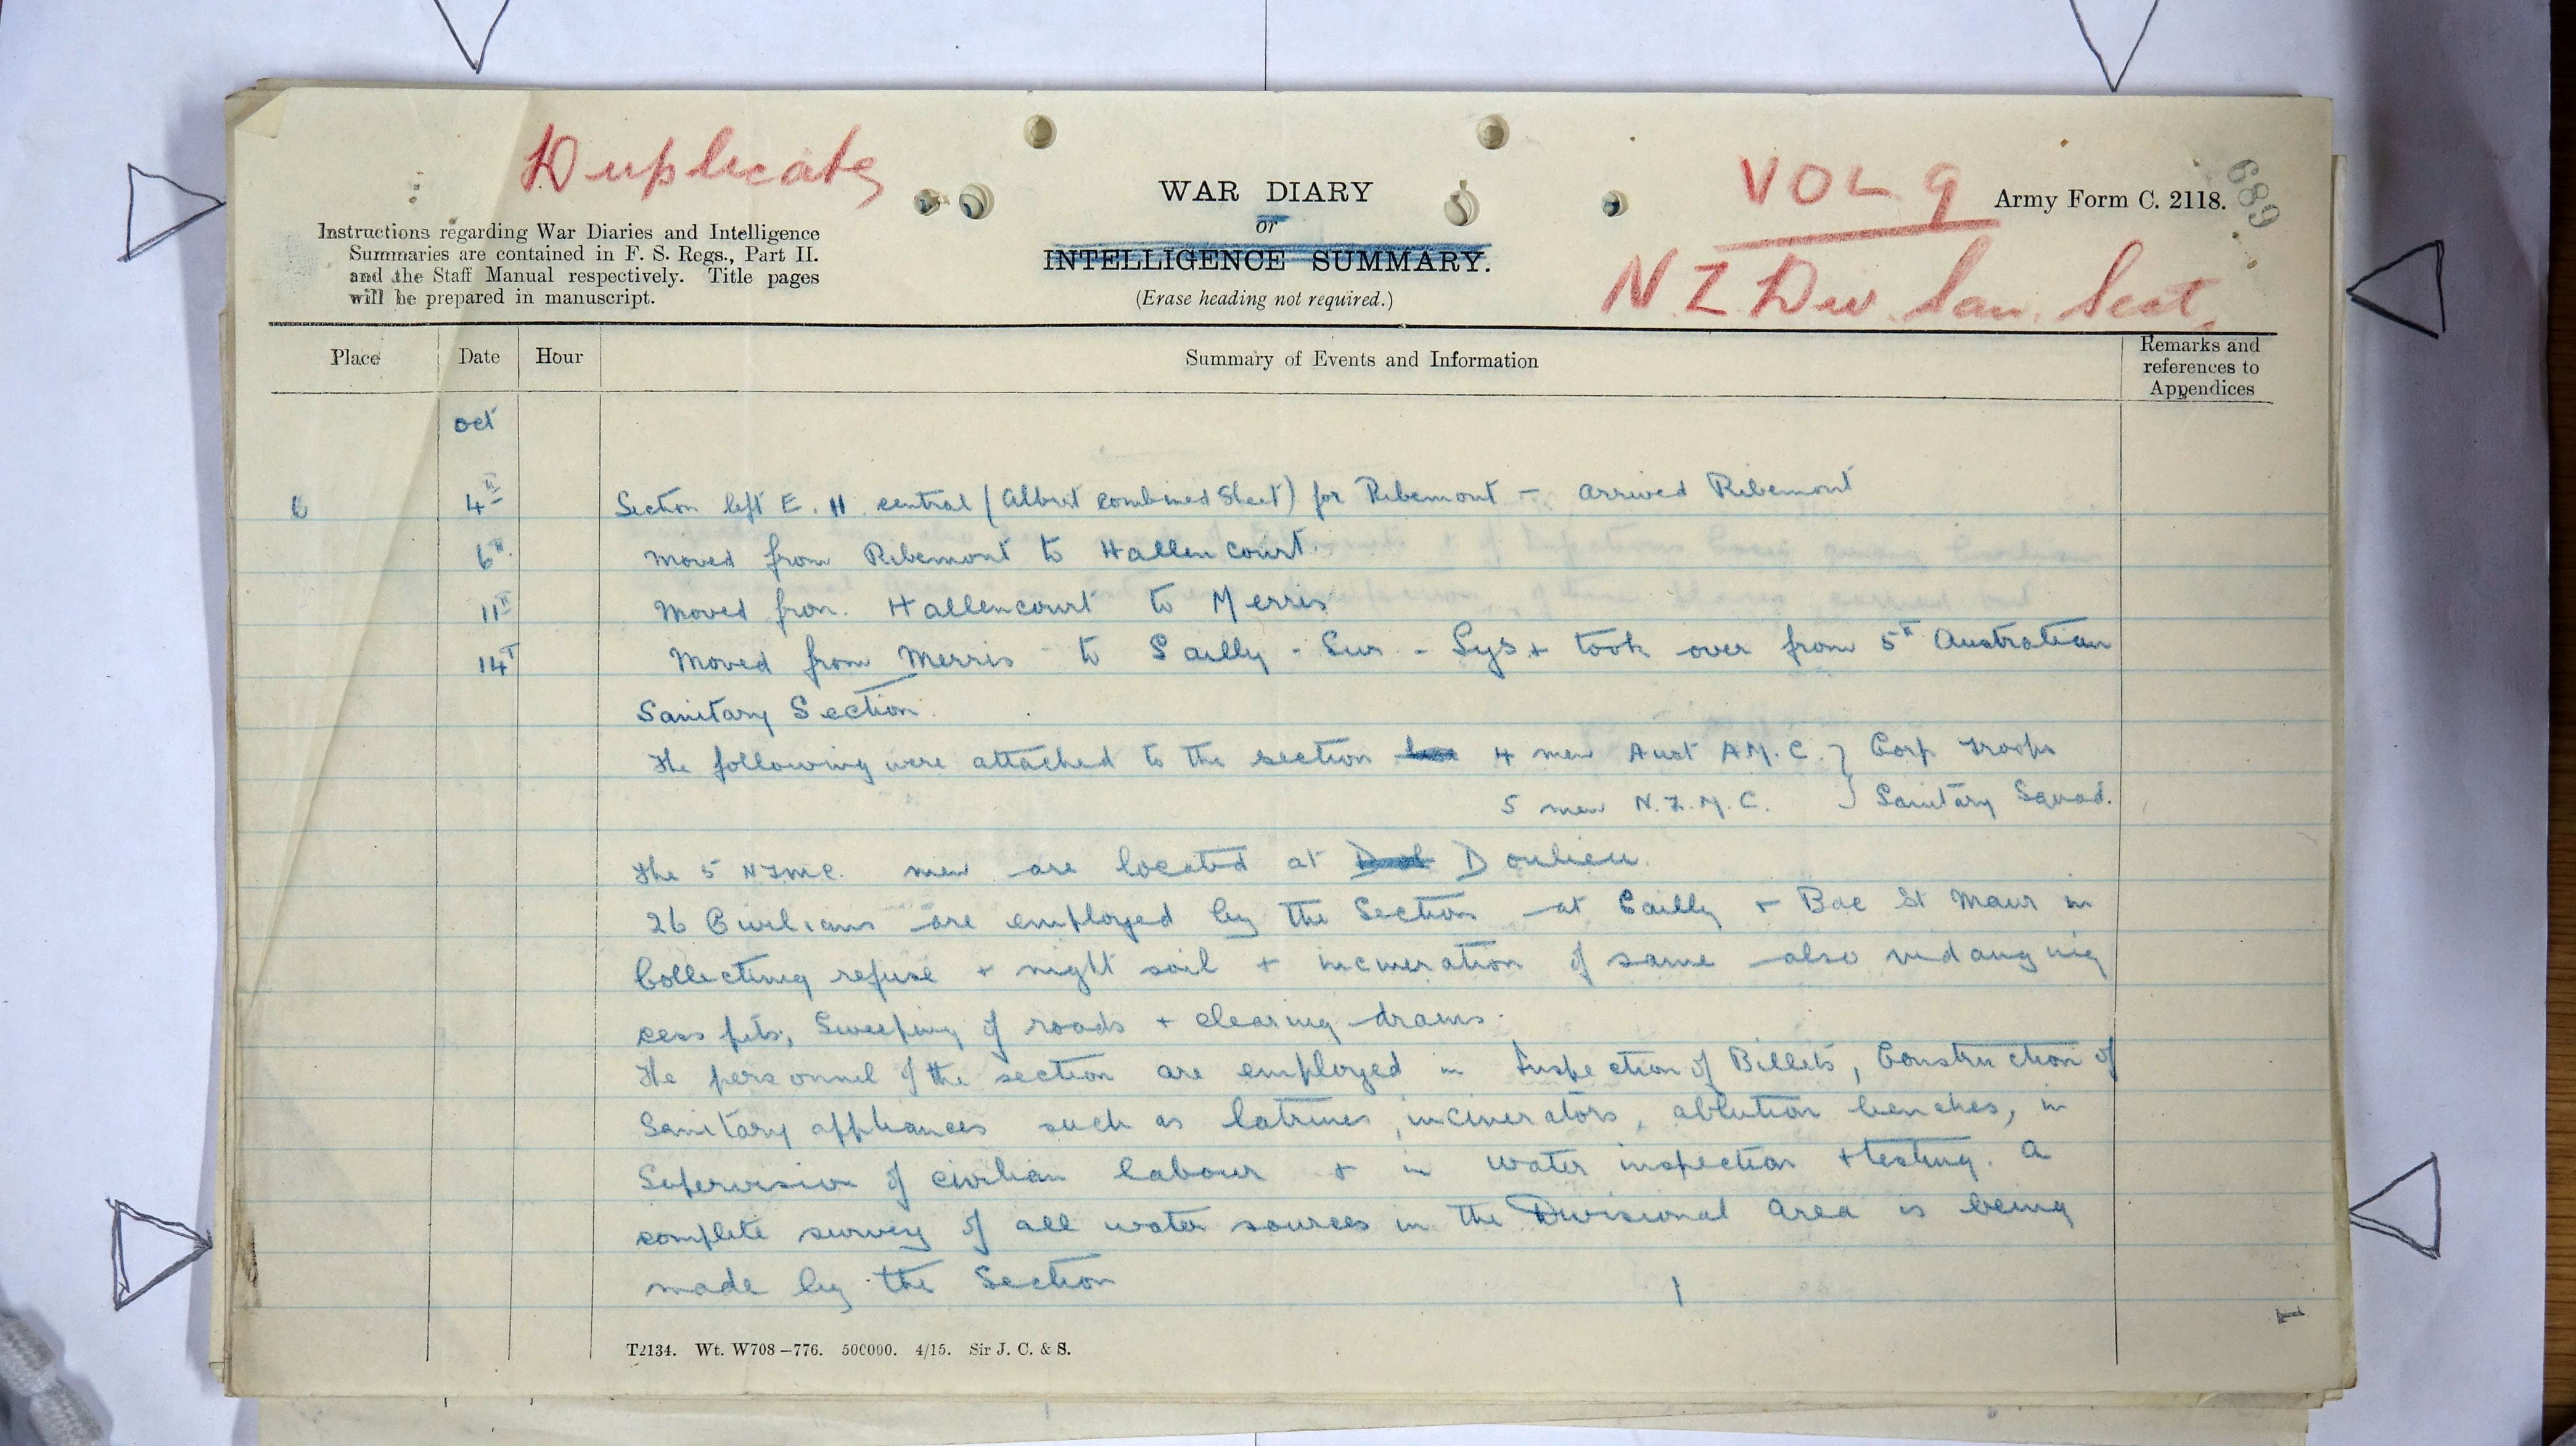 Duplicate
VOL 9
Army Form C. 2118.
689
WAR DIARY
or
INTELLIGENCE SUMMARY.
(Erase heading not required.)
N.Z. Div. San. Sect.
Instructions regarding War Diaries and Intelligence
Summaries are contained in F. S. Regs., Part II.
and the Staff Manual respectively. Title pages
will be prepared in manuscript.
Place Date Hour Summary of Events and Information Remarks and
references to
Appendices
Oct
4th Section left E. 11 central (Albert combined Sheet) for Ribemont - arrived Ribemont
6th Moved from Ribemont to Hallencourt.
11th Moved from Hallencourt to Merris
14th Moved from Merris to Sailly - Sur - Lys & took over from 5th Australian
Sanitary Section.
The following were attached to the section 4 men Aust A.M.C. } Corp Troops
5 men N.Z.M.C. } Sanitary Squad.
The 5 NZMC. men are located at Doulieu.
26 Civilians are employed by the Section at Sailly + Bac St Maur in
Collecting refuse + night soil + incineration of same also vidanging
cess pits, Sweeping of roads + clearing drains.
The personnel of the section are employed in Inspection of Billets, Construction of
Sanitary appliances such as latrines, incinerators, ablution benches, in
Supervision of civilian labour & in water inspection + testing. A
complete survey of all water sources in the Divisional Area is being
made by the Section
1
T2134. Wt. W708—776. 500000. 4/15. Sir J. C. & S.